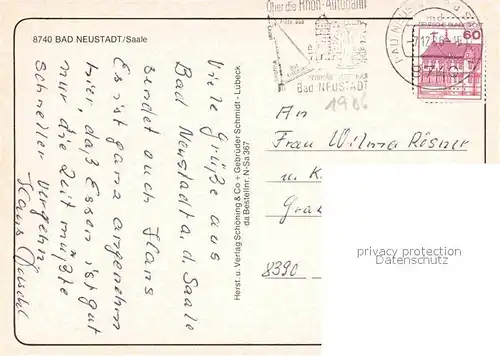 8740 BAD NEUSTADT/Saale
Viele Grüße aus
Bad Neustadt a. d. Saale
sendet euch Hans
Es ist ganz angenehm
hier, daß Essen ist gut
nur die Zeit müßte
schneller vergehn
Hans
Herst. u. Verlag Schöning & Co + Gebrüder Schmidt · Lübeck
da Bestellnr. N-Sa 367
Über die Rhön-Autobahn
Bad NEUSTADT
60
1986
An
Frau Wilma Rösner
u. K
8390
privacy protection
Datenschutz